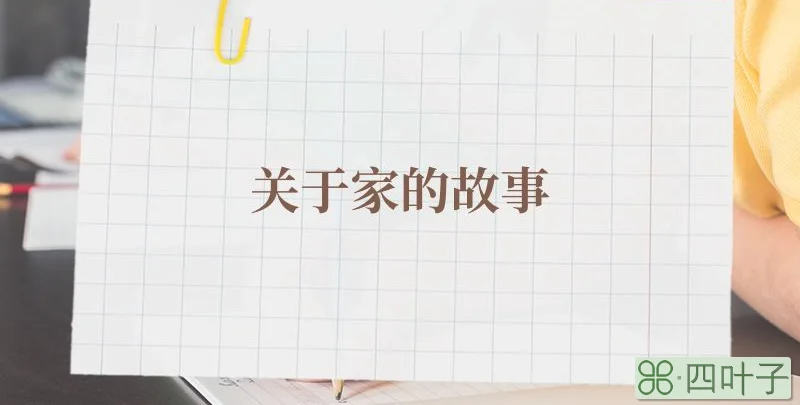 关于家的故事
⌘·四叶子